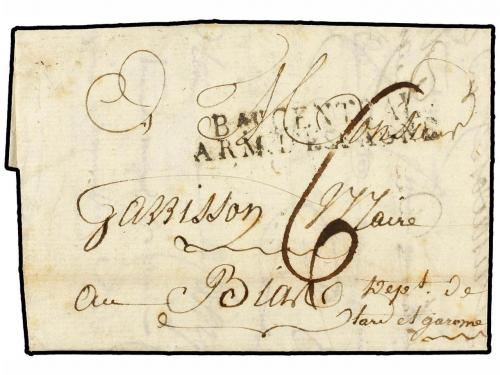 A Monsieur
BAU CENTRAL
ARM. D'ESPAGNE
6
Garrisson Maire
au Biac Dept. de
tarn et garonne